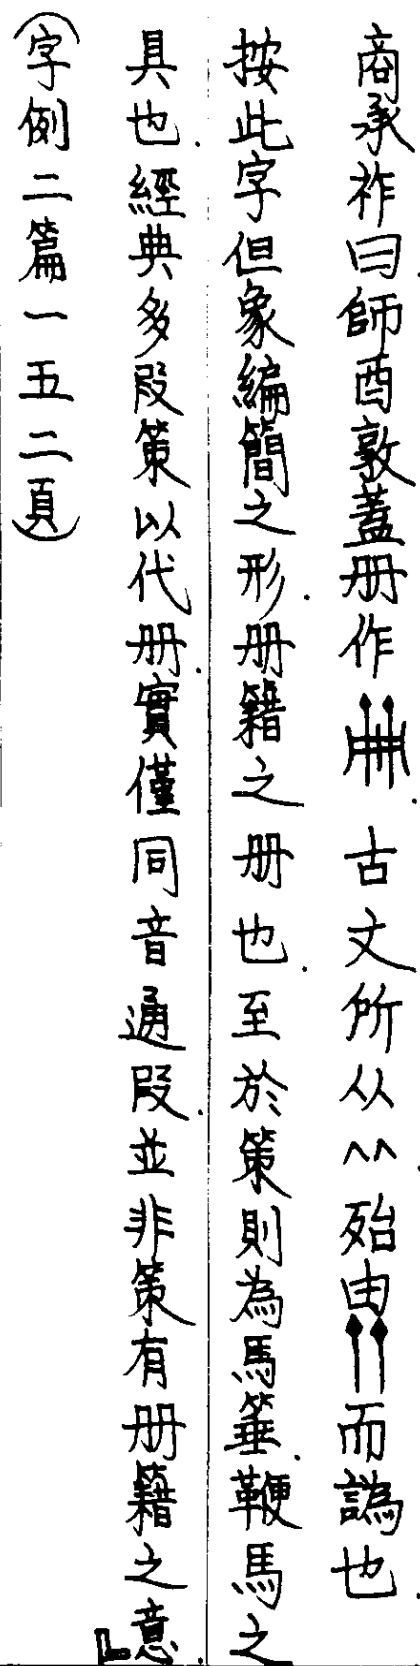 商承祚曰師酉敦蓋册作古文所从𥫗殆由而譌也.
按此字但象編簡之形.册籍之册也.至於策則為馬箠.鞭馬之
具也.經典多叚策以代册.實僅同音通叚.並非策有册籍之意.』
(字例二篇一五二頁)